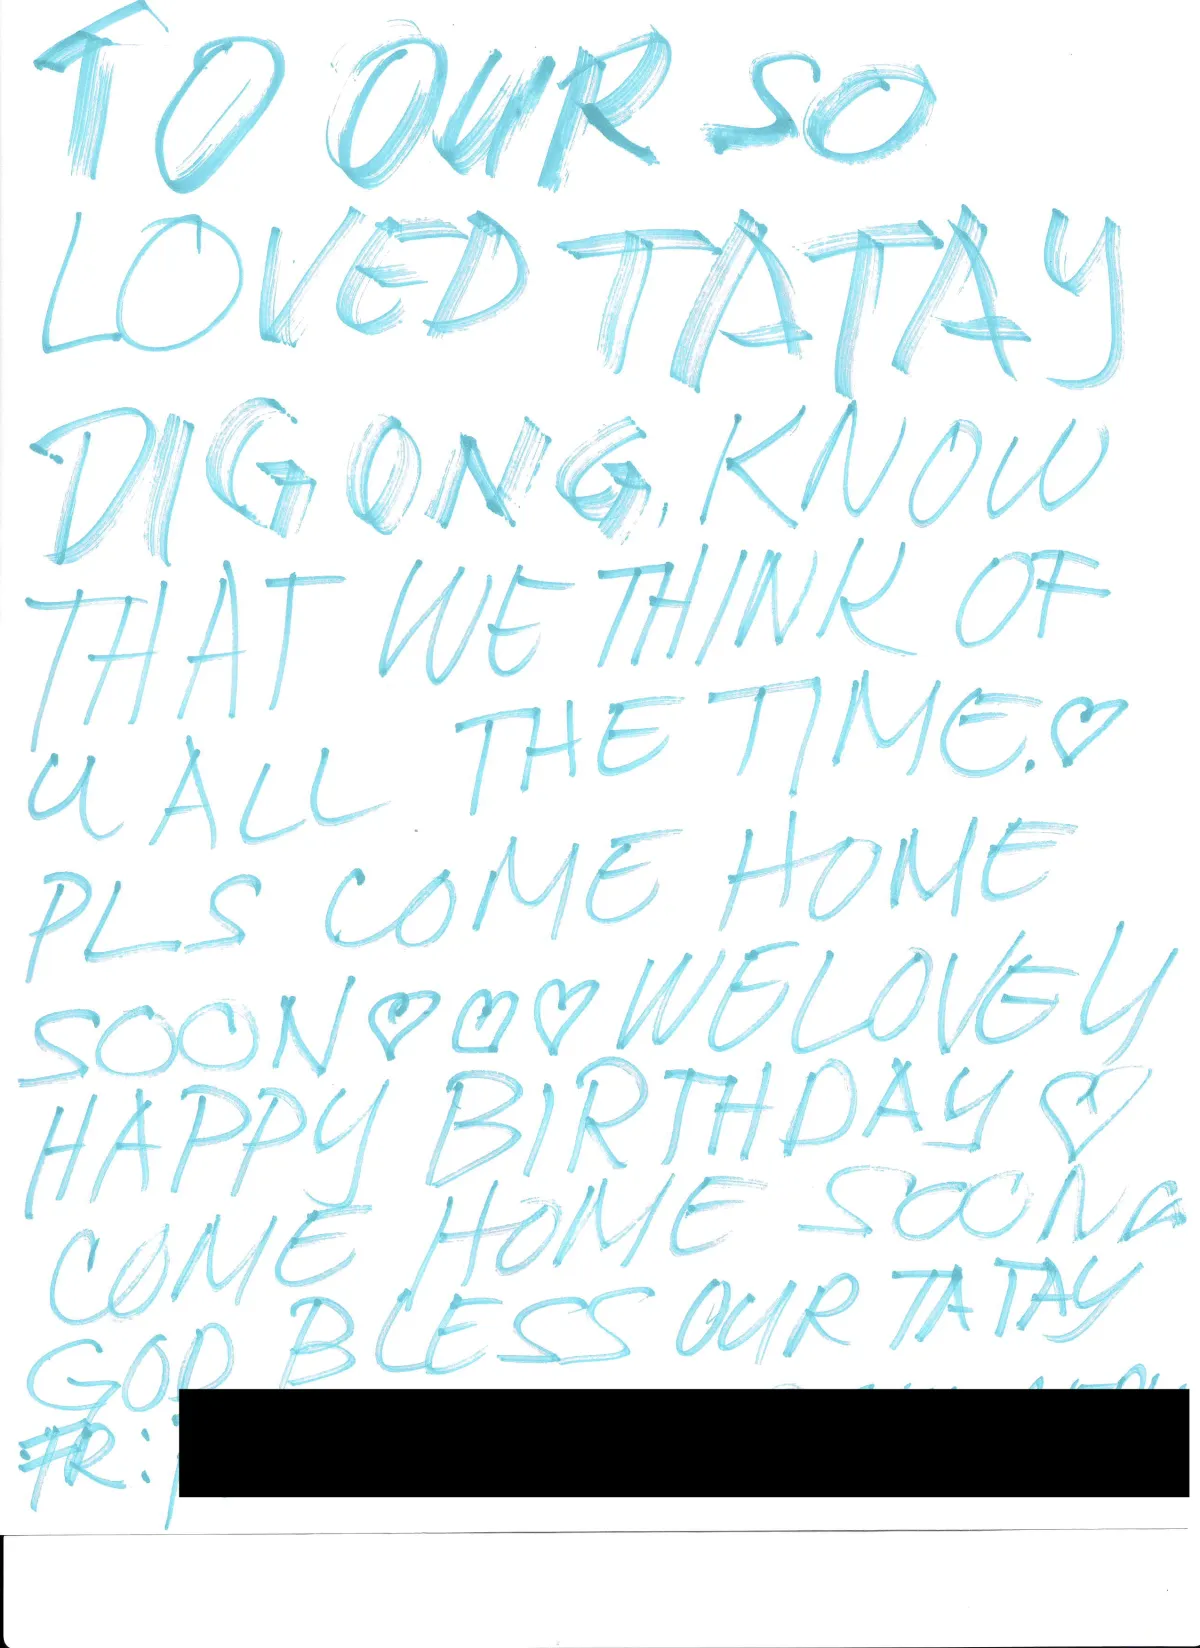 TO OUR SO
LOVED TATAY
DIGONG, KNOW
THAT WE THINK OF
U ALL THE TIME.♡
PLS COME HOME
SOON♡♡♡ WE LOVE Y
HAPPY BIRTHDAY♡
COME HOME SOON
GOD BLESS OUR TATAY
FR: